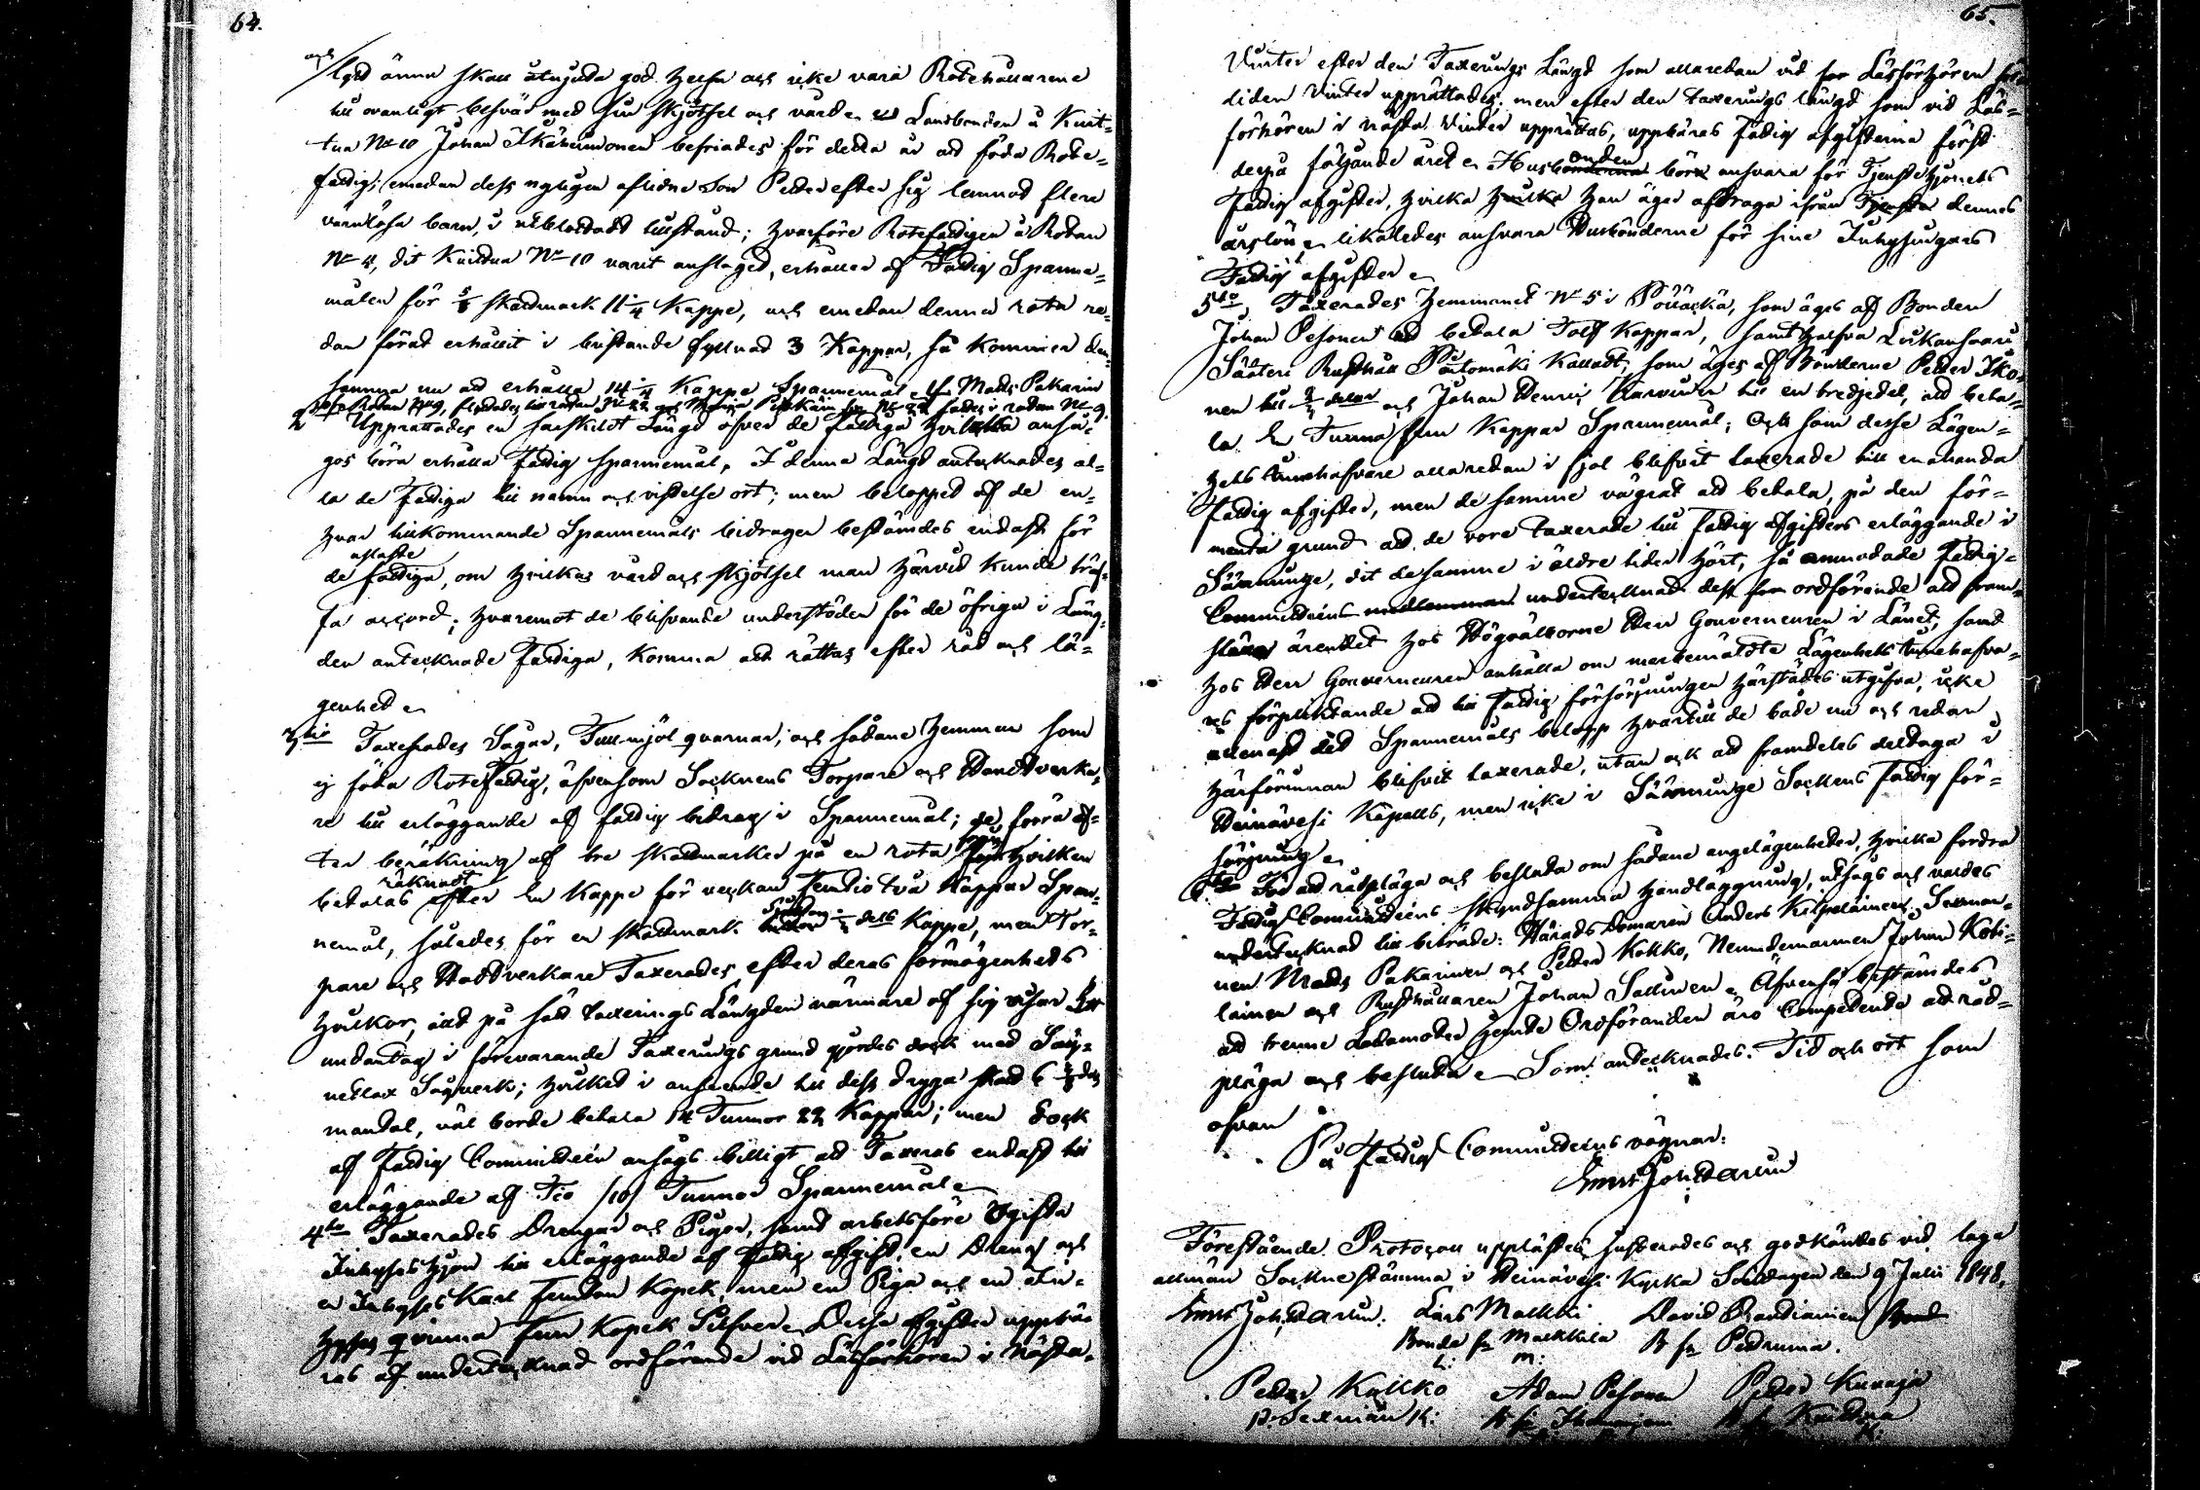 64.
och
lytt ännu skall åtnjuta god helsa och icke vara Rotehållarene
till ovanligt besvär med sin skjötsel och vård. Landbonden å Kuit-
tua N:o 10 Johan Ikäheimonen befriades för detta år att föda Rote-
fattig, emedan dess nyligen aflidne Son Petter efter sig lemnat flere
värnlösa barn, i utblottadt tillstånd; hvarföre Rotefattigen i Rotan
N:o 4, dit Kuittua N:o 10 varit anslaget, erhåller af Fattig Spanne-
målen för skattmark 11 1/4 Kappe, och emedan denna rota re-
dan förut erhållit i bristande fyllnad 3 Kappar, så kommer den-
samma nu att erhålla 14 1/4 Kappe Spannemål. Mats Pakarin
Upprättades en särskildt Längd öfver de fattiga hvilka anså-
gos böra erhålla Fattig spannemål. I denna Längd antecknades al-
la de Fattiga till namn och vistelse ort; men beloppet af de en-
hvar tillkommande Spannemåls bidragen bestämdes endast för
de fattiga, om hvilkas vård och skjötsel man härvid kunde träf-
fa accord; hvaremot de blifvande understöden för de öfriga i Läng-
den antecknade Fattiga, komma att rättas efter råd och lä-
genhet.
3:tio Taxerades Sågar, Tullmjöl qvarnar, och sådane Hemman som
ej föda Rotefattig, äfvensom Socknens Torpare och Handtverka-
re till erläggande af fattig bidrag i Spannemål; de förra ef-
ter beräkning af tre skattmarker på en rota från hvilken
räknadt
betalas efter En Kappe för veckan Femtio två Kappar Span-
nemål, således för en skattmark dels Kappe, men Tor-
pare och Handtverkare Taxerades efter deras förmögenhets
hvilkor, allt på sätt taxerings Längden närmare af sig visar. Ett
undantag i förevarande Taxerings grund gjordes dock med Säy-
neklax Sagverk; hvilket i anseende till dess dryga skatt 6
mantal, väl borde betala 14 Tunnor 22 Kappar; men dock
af Fattig Committéen ansågs billigt att Taxeras endast till
erläggande af Tio /10/ Tunnor Spannemål.
4:to Taxerades Drengar och Pigor, samt arbetsföre Ogifta
Inhyseshjon till erläggande af Fattig afgift, en Dreng och
en Inhyses Karl Femton Kopek, men en Piga och en In-
hyses qvinna Fem Kopek Silfver. Dessa afgifter uppbä-
ras af undertecknad ordförande vid Läsförhören i nästa
65.
Vinter efter den Taxerings Längd som allaredan vid Läsförhören för-
liden Vinter upprättades; men efter den taxerings längd som vid Läs-
förhören i nästa Vinter upprättas, uppbäras Fattig afgifterna först
derpå följande året. Husbonden bör ansvara för Tjenstehjonets
Fattig afgifter, hvilka han äger afdraga ifrån dennes
årslön, likaledes ansvara Husbönderne för sine Inhysingars
Fattig afgifter.
5:to Taxerades Hemmanet N:o 5 i Pölläckä, som äges af Bonden
Johan Pesonen att betala Tolf Kappar, samt halfva Lukansaari
Säteri Rusthåll Pautomäki Kalladt, som äges af Bönderne Petter Iko-
nen till 2/3 delar och Johan Henric Karvinen till en tredjedel, att beta-
la En Tunna fem Kappar Spannemål; Och som desse Lägen-
hets innehafvare allaredan i fjol blifvit taxerade till enahanda
Fattig afgifter, men de samme vägrat att betala, på den för-
menta grund att de vore taxerade till Fattig afgifters erläggande i
Säminge, dit desamme i äldre tider hört, så anmodade Fattig-
Committéens undertecknad dess ordförande att fram-
ställa ärendet hos Högvälborne Herr Gouverneuren i Länet, samt
hos Herr Gouverneuren anhålla om merbemälte Lägenhets innehafva-
res förpliktande att till Fattig försörjningen härstädes utgifva, icke
allenast det Spannemåls belopp hvartill de både nu och redan
härförinnan blifvit taxerade, utan ock att framdeles deltaga i
Heinävesi Kapells, men icke i Säminge Sockens Fattig för-
sörjning.
6:to För att rådpläga och besluta om sådane angelägenheter, hvilka fordra
Fattig Committéens skyndsamma handläggning, utsågs och valdes
undertecknad till biträde: Härads Domaren Anders Kilpeläinen, Sexman-
nen Mats Pakarinen och Petter Kokko, Nemndemannen Johan Koti-
lainen och Rusthållaren Johan Sallinen. Äfvenså bestämdes
att trenne Ledamöter jemte Ordföranden äro Competente att råd-
pläga och besluta. Som antecknades. Tid och ort som
ofvan
På Fattig Committéens vägnar:
Ernst Joh: Darun
Förestående Protocoll upplästes, justerades och godkändes vid laga
allmän Sockne stämma i Heinävesi Kyrka Söndagen den 9 Julii 1848.
Ernst Joh: Darun. Lars Malkki David Pandianien
Bonde fr. Malkkila B. fr. Petruma.
Petter Kokko Adam Pesonen Petter Kunaja
p. Sexman K: